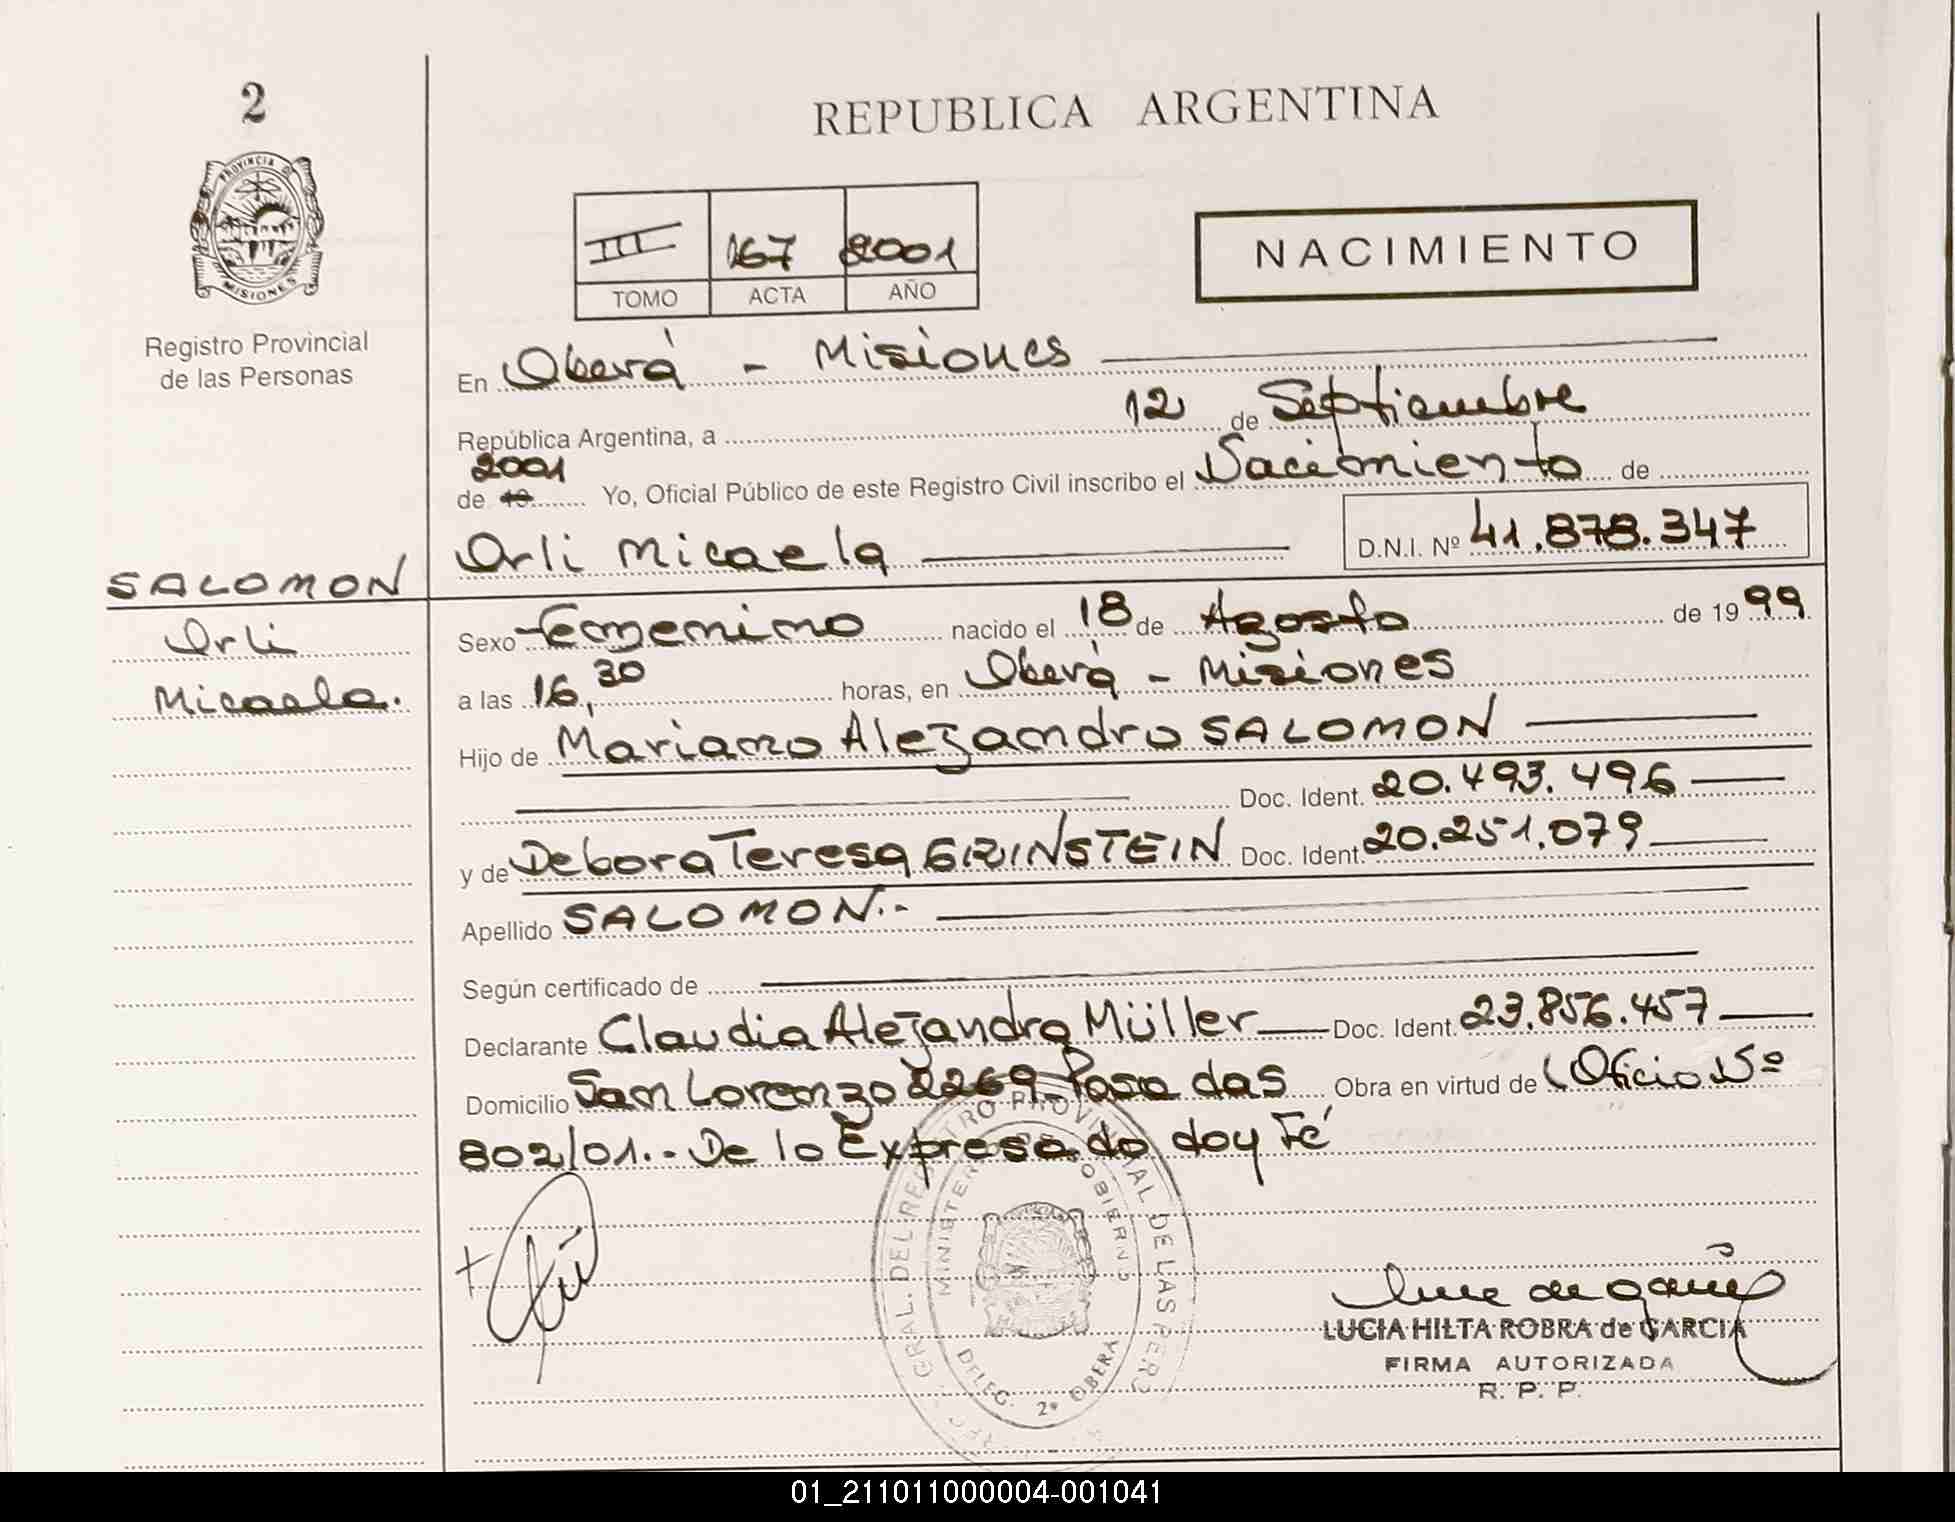 2
PROVINCIA DE
MISIONES
Registro Provincial
de las Personas
REPUBLICA ARGENTINA
III 167 2001
TOMO ACTA AÑO
NACIMIENTO
En Oberá - Misiones
República Argentina, a 12 de Septiembre
2001
de 19 Yo, Oficial Público de este Registro Civil inscribo el Nacimiento de
Orli Micaela D.N.I. Nº 41.878.347
SALOMON
Orli
Micaela.
Sexo femenino nacido el 18 de Agosto de 1999
a las 16,30 horas, en Oberá - Misiones
Hijo de Mariano Alejandro SALOMON
Doc. Ident. 20.493.496
y de Debora Teresa GRINSTEIN Doc. Ident. 20.251.079
Apellido SALOMON.-
Según certificado de
Declarante Claudia Alejandra Müller Doc. Ident. 23.856.457
Domicilio San Lorenzo 2269 Posadas Obra en virtud de Oficio Nº
802/01.- De lo Expresado doy Fé
GRAL. DEL REGISTRO PROVINCIAL DE LAS PERS
MINISTERIO DE GOBIERNO
DELEG. 2ª OBERA
LUCIA HILTA ROBRA de GARCIA
FIRMA AUTORIZADA
R. P. P.
01_211011000004-001041